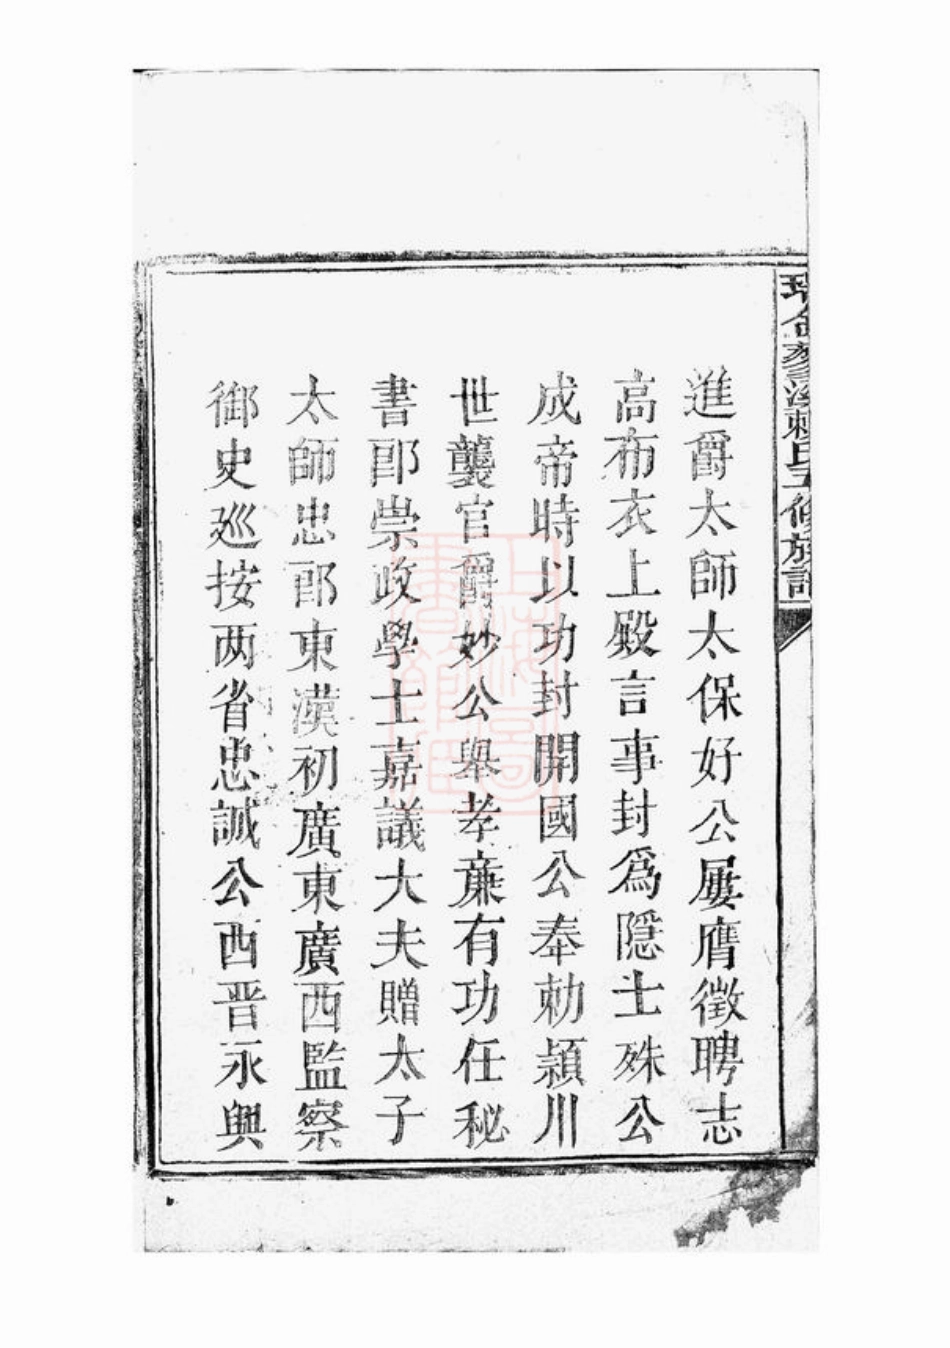 瑞金葵溪賴氏五修族譜
進爵太師太保好公屢膺徵聘志
高布衣上殿言事封爲隱士殊公
成帝時以功封開國公奉勅潁川
世襲官爵妙公舉孝亷有功任秘
書郎崇政學士嘉議大夫贈太子
太師忠郎東漢初廣東廣西監察
御史廵按两省忠誠公西晋永興